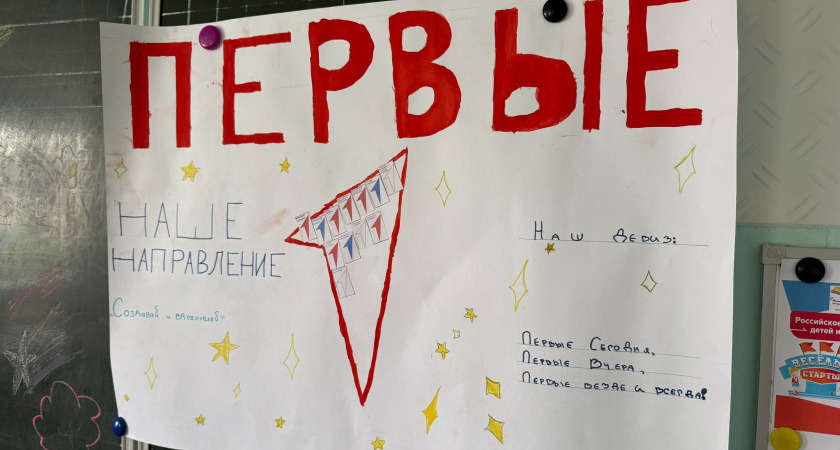 ПЕРВЫЕ
НАШЕ
НАПРАВЛЕНИЕ
Создавай и
Наш Девиз:
Первые Сегодня,
Первые Вчера,
Первые везде и всегда!
Российское
детей и
ВЕСЁЛ
СТАРТЫ